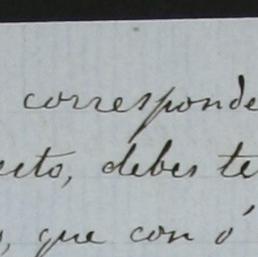 corresponde
debes te
que con ó